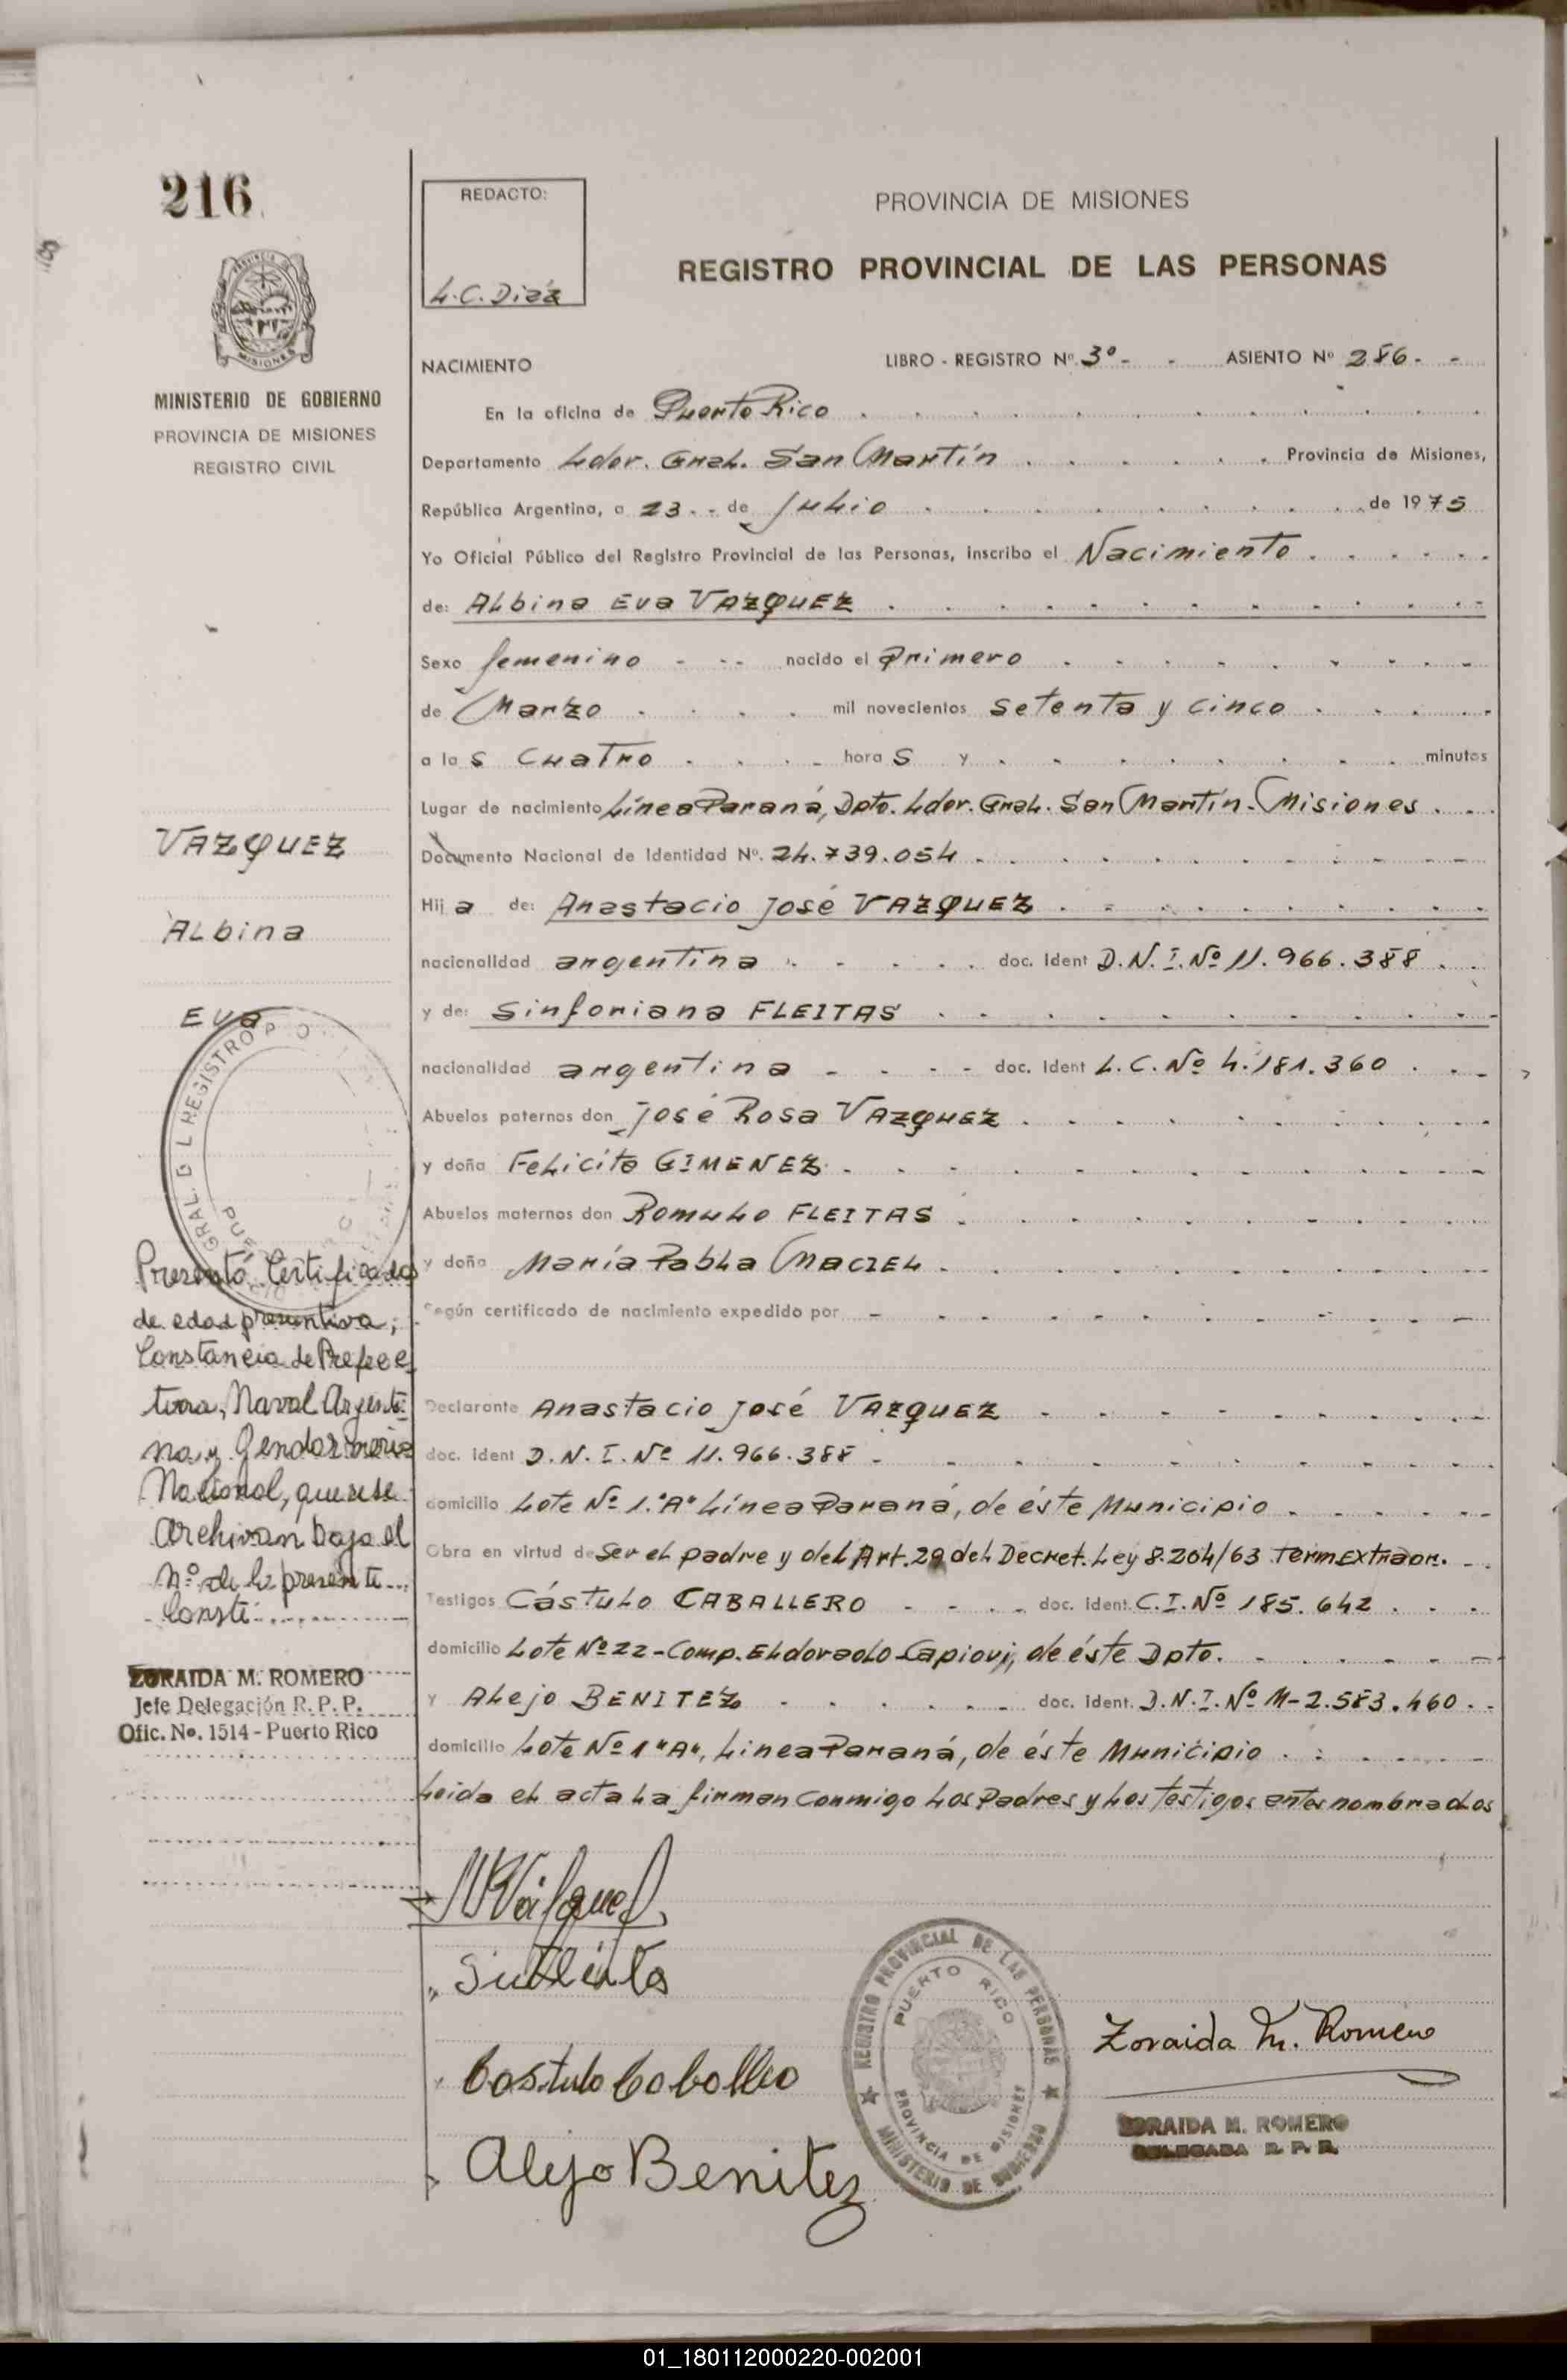 216
REDACTO:
L.C. Diáz
PROVINCIA DE MISIONES
REGISTRO PROVINCIAL DE LAS PERSONAS
MISIONES
MINISTERIO DE GOBIERNO
PROVINCIA DE MISIONES
REGISTRO CIVIL
NACIMIENTO LIBRO - REGISTRO Nº. 3º - - ASIENTO Nº 286. -
En la oficina de Puerto Rico
Departamento Lder. Gral. San Martín Provincia de Misiones,
República Argentina, a 23 - - de Julio de 1975
Yo Oficial Público del Registro Provincial de las Personas, inscribo el Nacimiento
de: Albina Eva VAZQUEZ
Sexo femenino - - - nacido el Primero
de Marzo mil novecientos setenta y cinco
a las cuatro horas y minutos
Lugar de nacimiento Línea Paraná, Dpto. Lder. Gral. San Martín - Misiones
Documento Nacional de Identidad Nº. 24.739.054
Hija de: Anastacio José VAZQUEZ
nacionalidad argentina doc. Ident D.N.I. Nº 11.966.388
y de: Sinforiana FLEITAS
nacionalidad argentina - - - - doc. Ident L.C. Nº 4.181.360
Abuelos paternos don José Rosa VAZQUEZ
y doña Felicita GIMENEZ
Abuelos maternos don Romulo FLEITAS
y doña María Pabla MACIEL
Según certificado de nacimiento expedido por
Declarante Anastacio José VAZQUEZ
doc. ident D.N.I. Nº 11.966.388
domicilio Lote Nº 1."A" Línea Paraná, de éste Municipio
Obra en virtud de Ser el padre y del Art. 29 del Decret. Ley 8.204/63 Term Extraor.
Testigos Cástulo CABALLERO doc. ident. C.I. Nº 185.642
domicilio Lote Nº 22 - Comp. Eldorado - Capiovi, de éste Dpto.
y Alejo BENITEZ doc. ident. D.N.I. Nº M-2.583.460
domicilio Lote Nº 1 "A", Linea Paraná, de éste Municipio
Leida el acta la firman conmigo los Padres y los testigos antes nombrados
VAZQUEZ
Albina
Eva
GRAL. D L REGISTRO P
Presentó Certificado
de edad presuntiva,
Constancia de Prefec
tura, Naval Argenti
na, y Gendarmeria
Nacional, que se
archivan bajo el
Nº de la presente
Conste
ZORAIDA M. ROMERO
Jefe Delegación R. P. P.
Ofic. No. 1514 - Puerto Rico
Castulo Caballeo
Alejo Benitez
REGISTRO PROVINCIAL DE LAS PERSONAS
PUERTO RICO
PROVINCIA DE MISIONES
MINISTERIO DE GOBIERNO
Zoraida M. Romero
ZORAIDA M. ROMERO
DELEGADA R. P. P.
01_180112000220-002001